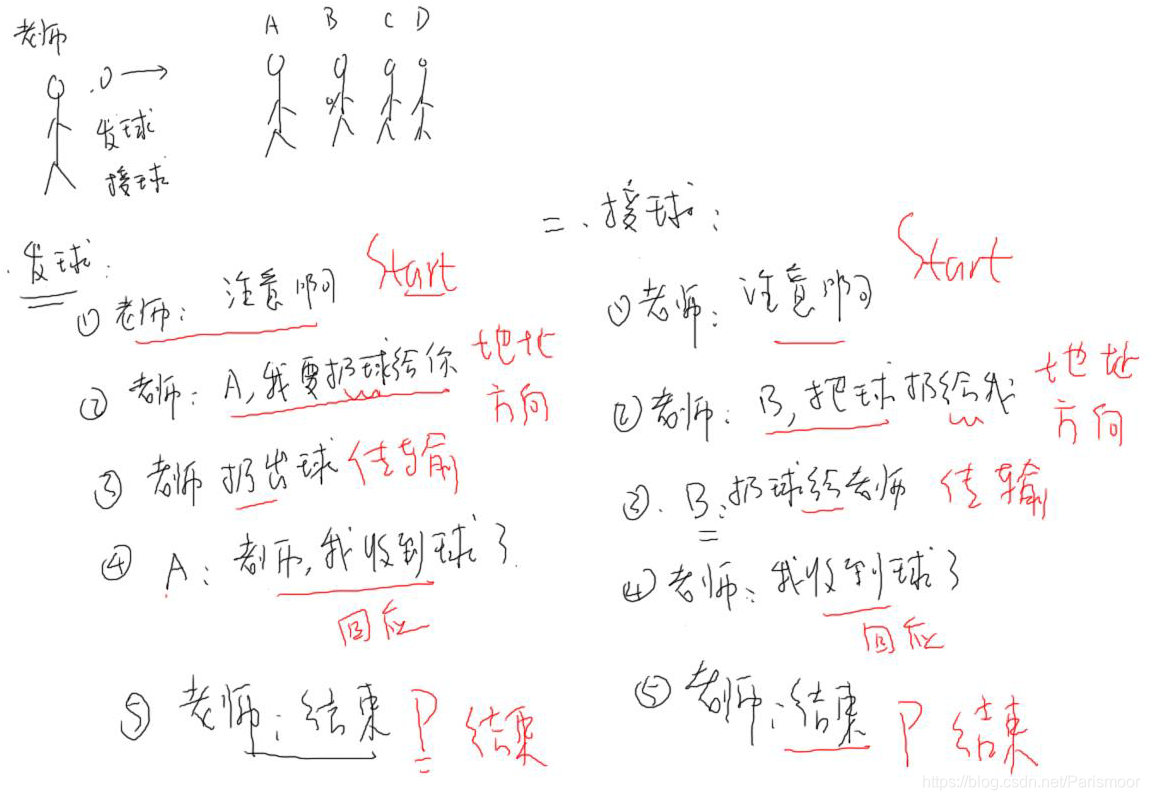 老师
A B C D
发球
接球
发球:
① 老师: 注意啊 Start
② 老师: A,我要扔球给你 地址
方向
③ 老师 扔出球 传输
④ A: 老师,我收到球了
回应
⑤ 老师: 结束 P 结束
二.接球:
① 老师: 注意啊 Start
② 老师: B,把球扔给我 地址
方向
③. B:扔球给老师 传输
④ 老师: 我收到球了
回应
⑤ 老师: 结束 P 结束
https://blog.csdn.net/Parismoor